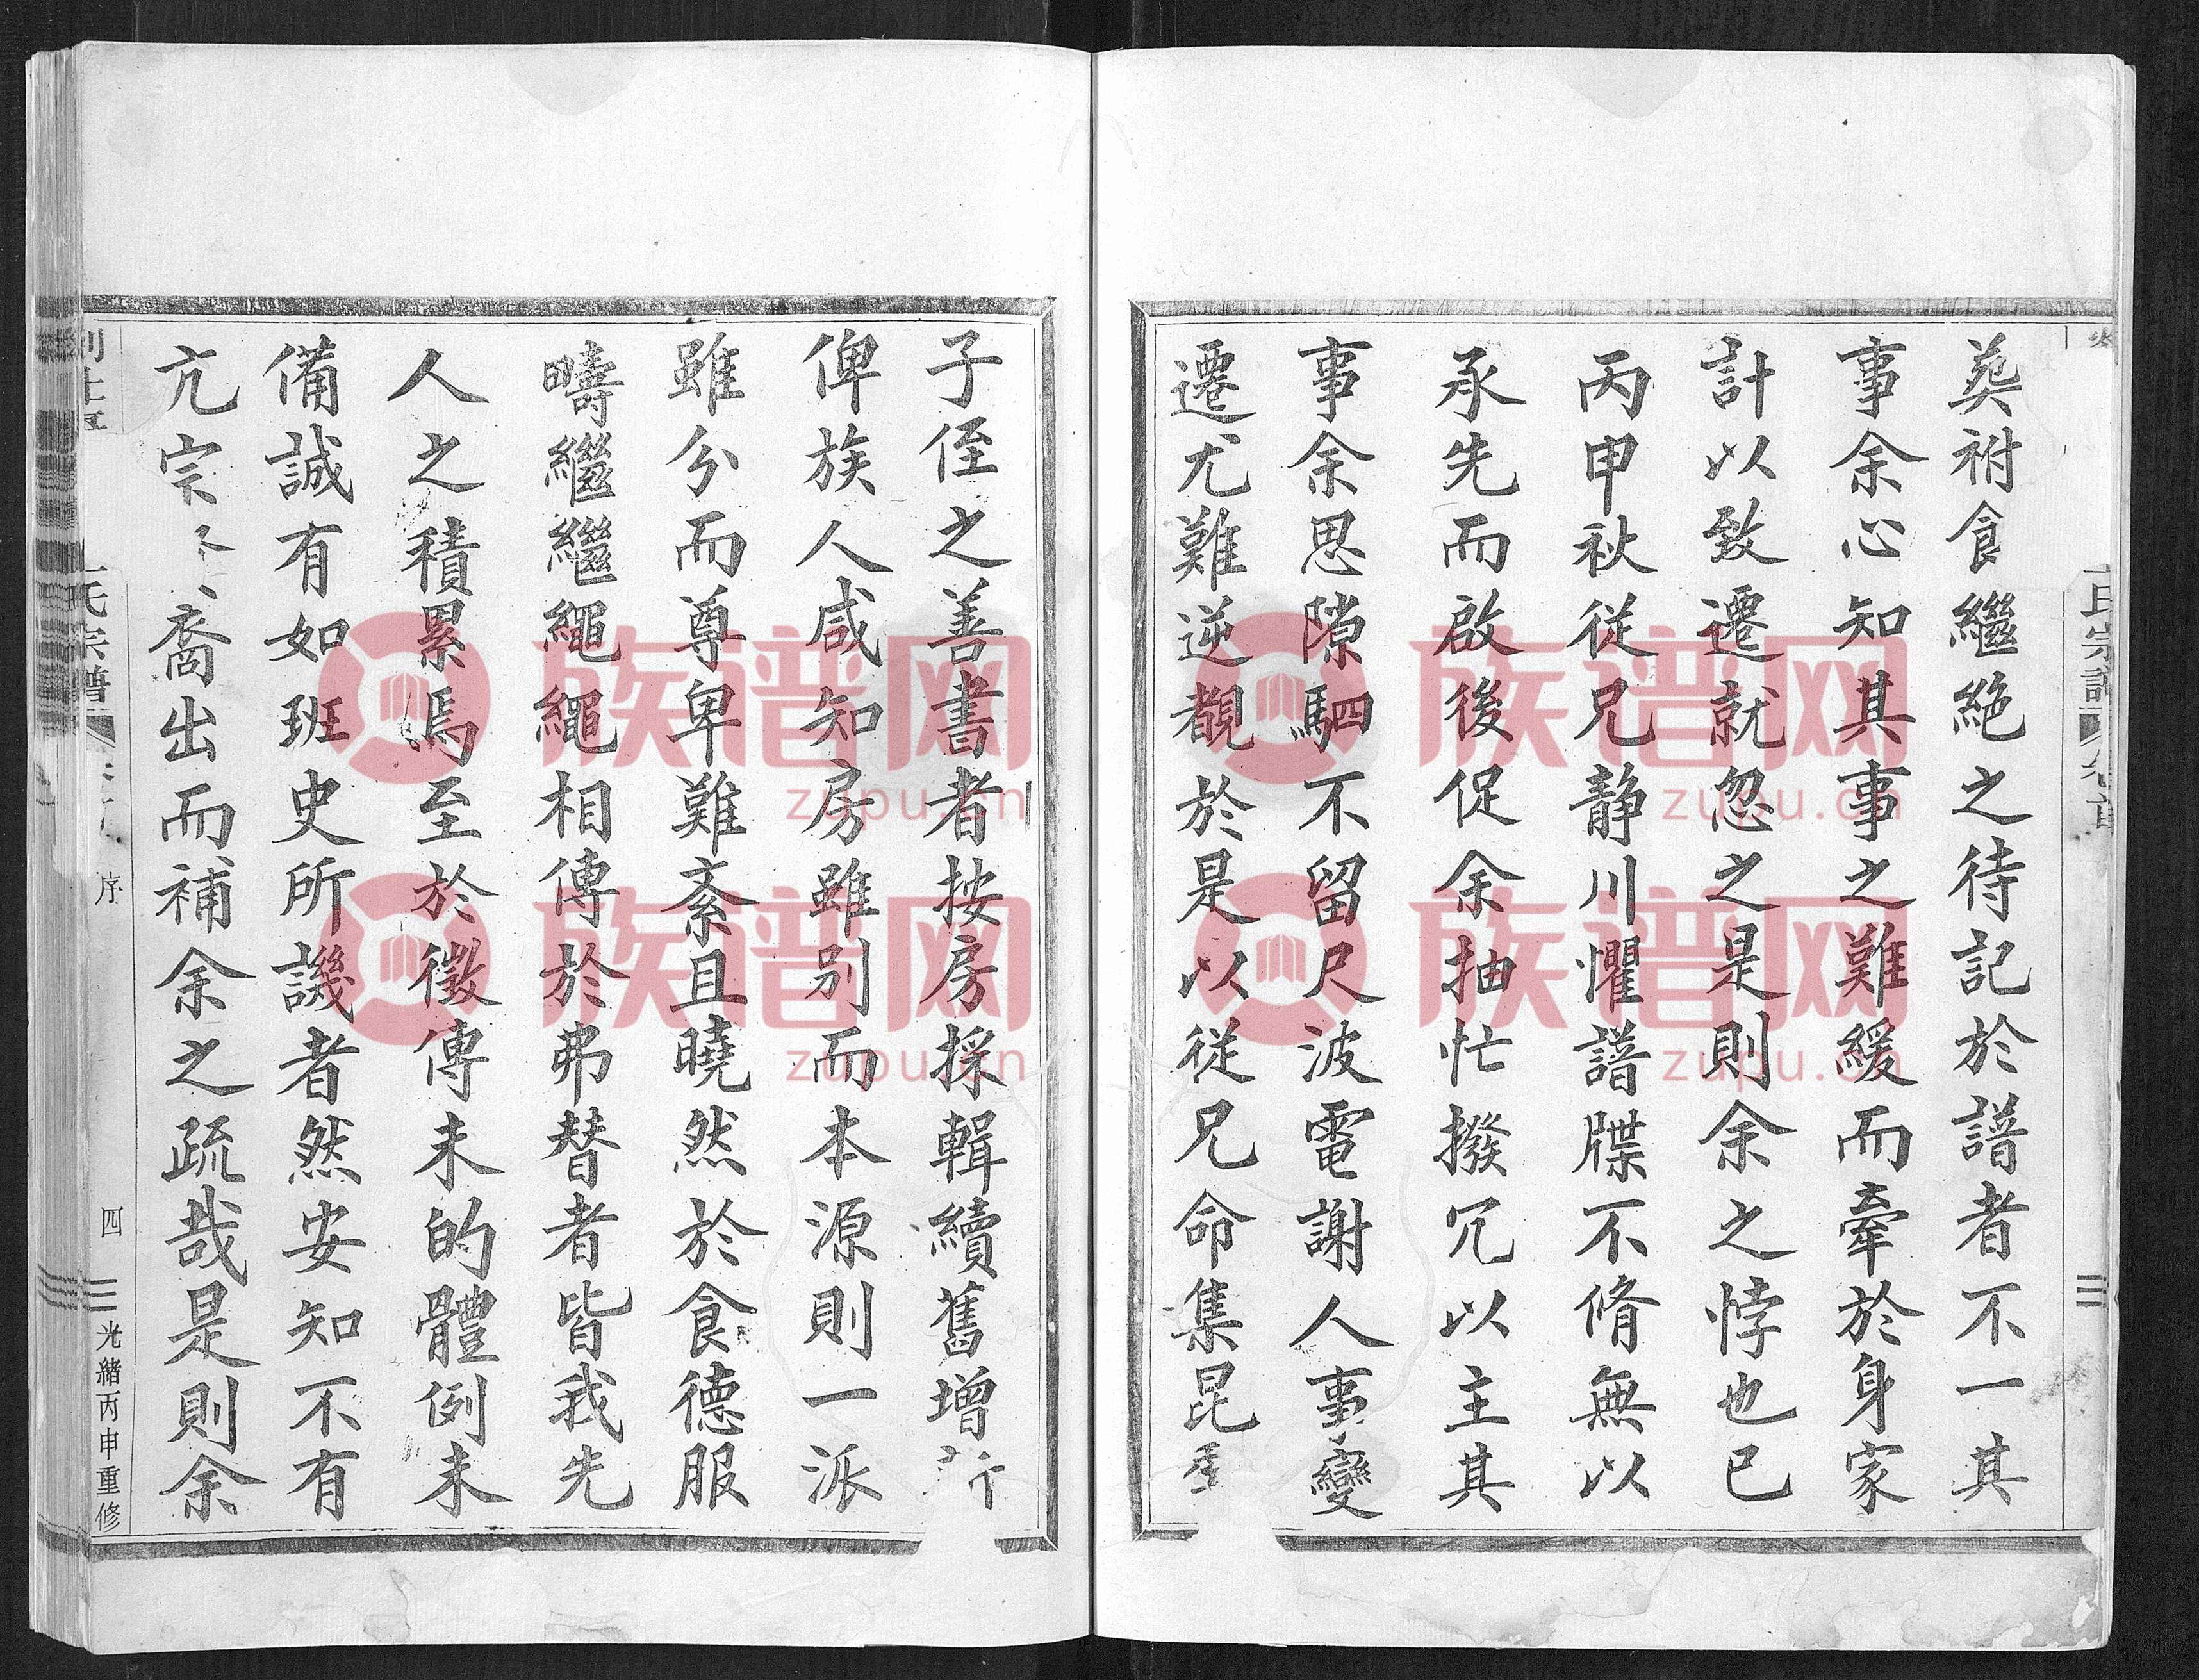 葬祔食繼絶之待記於譜者不一其
事余心知其事之難緩而牽於身家
計以致遷就忽之是則余之悖也已
丙申秋從兄静川懼譜牒不脩無以
承先而啟後促余抽忙撥冗以主其
事余思隙駟不留尺波電謝人事變
遷尤難逆覩於是以從兄命集昆
子侄之善書者按房採輯續舊增
俾族人咸知房雖别而本源則一派
雖分而尊卑難紊且曉然於食德服
疇繼繼繩繩相傳於弗替者皆我先
人之積累焉至於徵傳未的體例未
備誠有如班史所譏者然安知不有
亢宗裔出而補余之疏哉是則余
氏宗譜
序
四
光緒丙申重修
氏宗譜
族谱网
zupu.cn
族谱网
zupu.cn
族谱网
zupu.cn
族谱网
zupu.cn